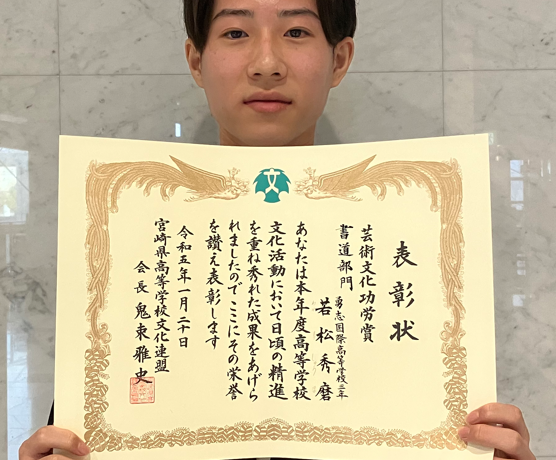 表彰状
芸術文化功労賞
書道部門
勇志国際高等学校二年
若松秀磨
あなたは本年度高等学校
文化活動において日頃の精進
を重ね秀れた成果をあげら
れましたのでここにその栄誉
を讃え表彰します
令和五年一月二十日
宮崎県高等学校文化連盟
会長 鬼束雅史